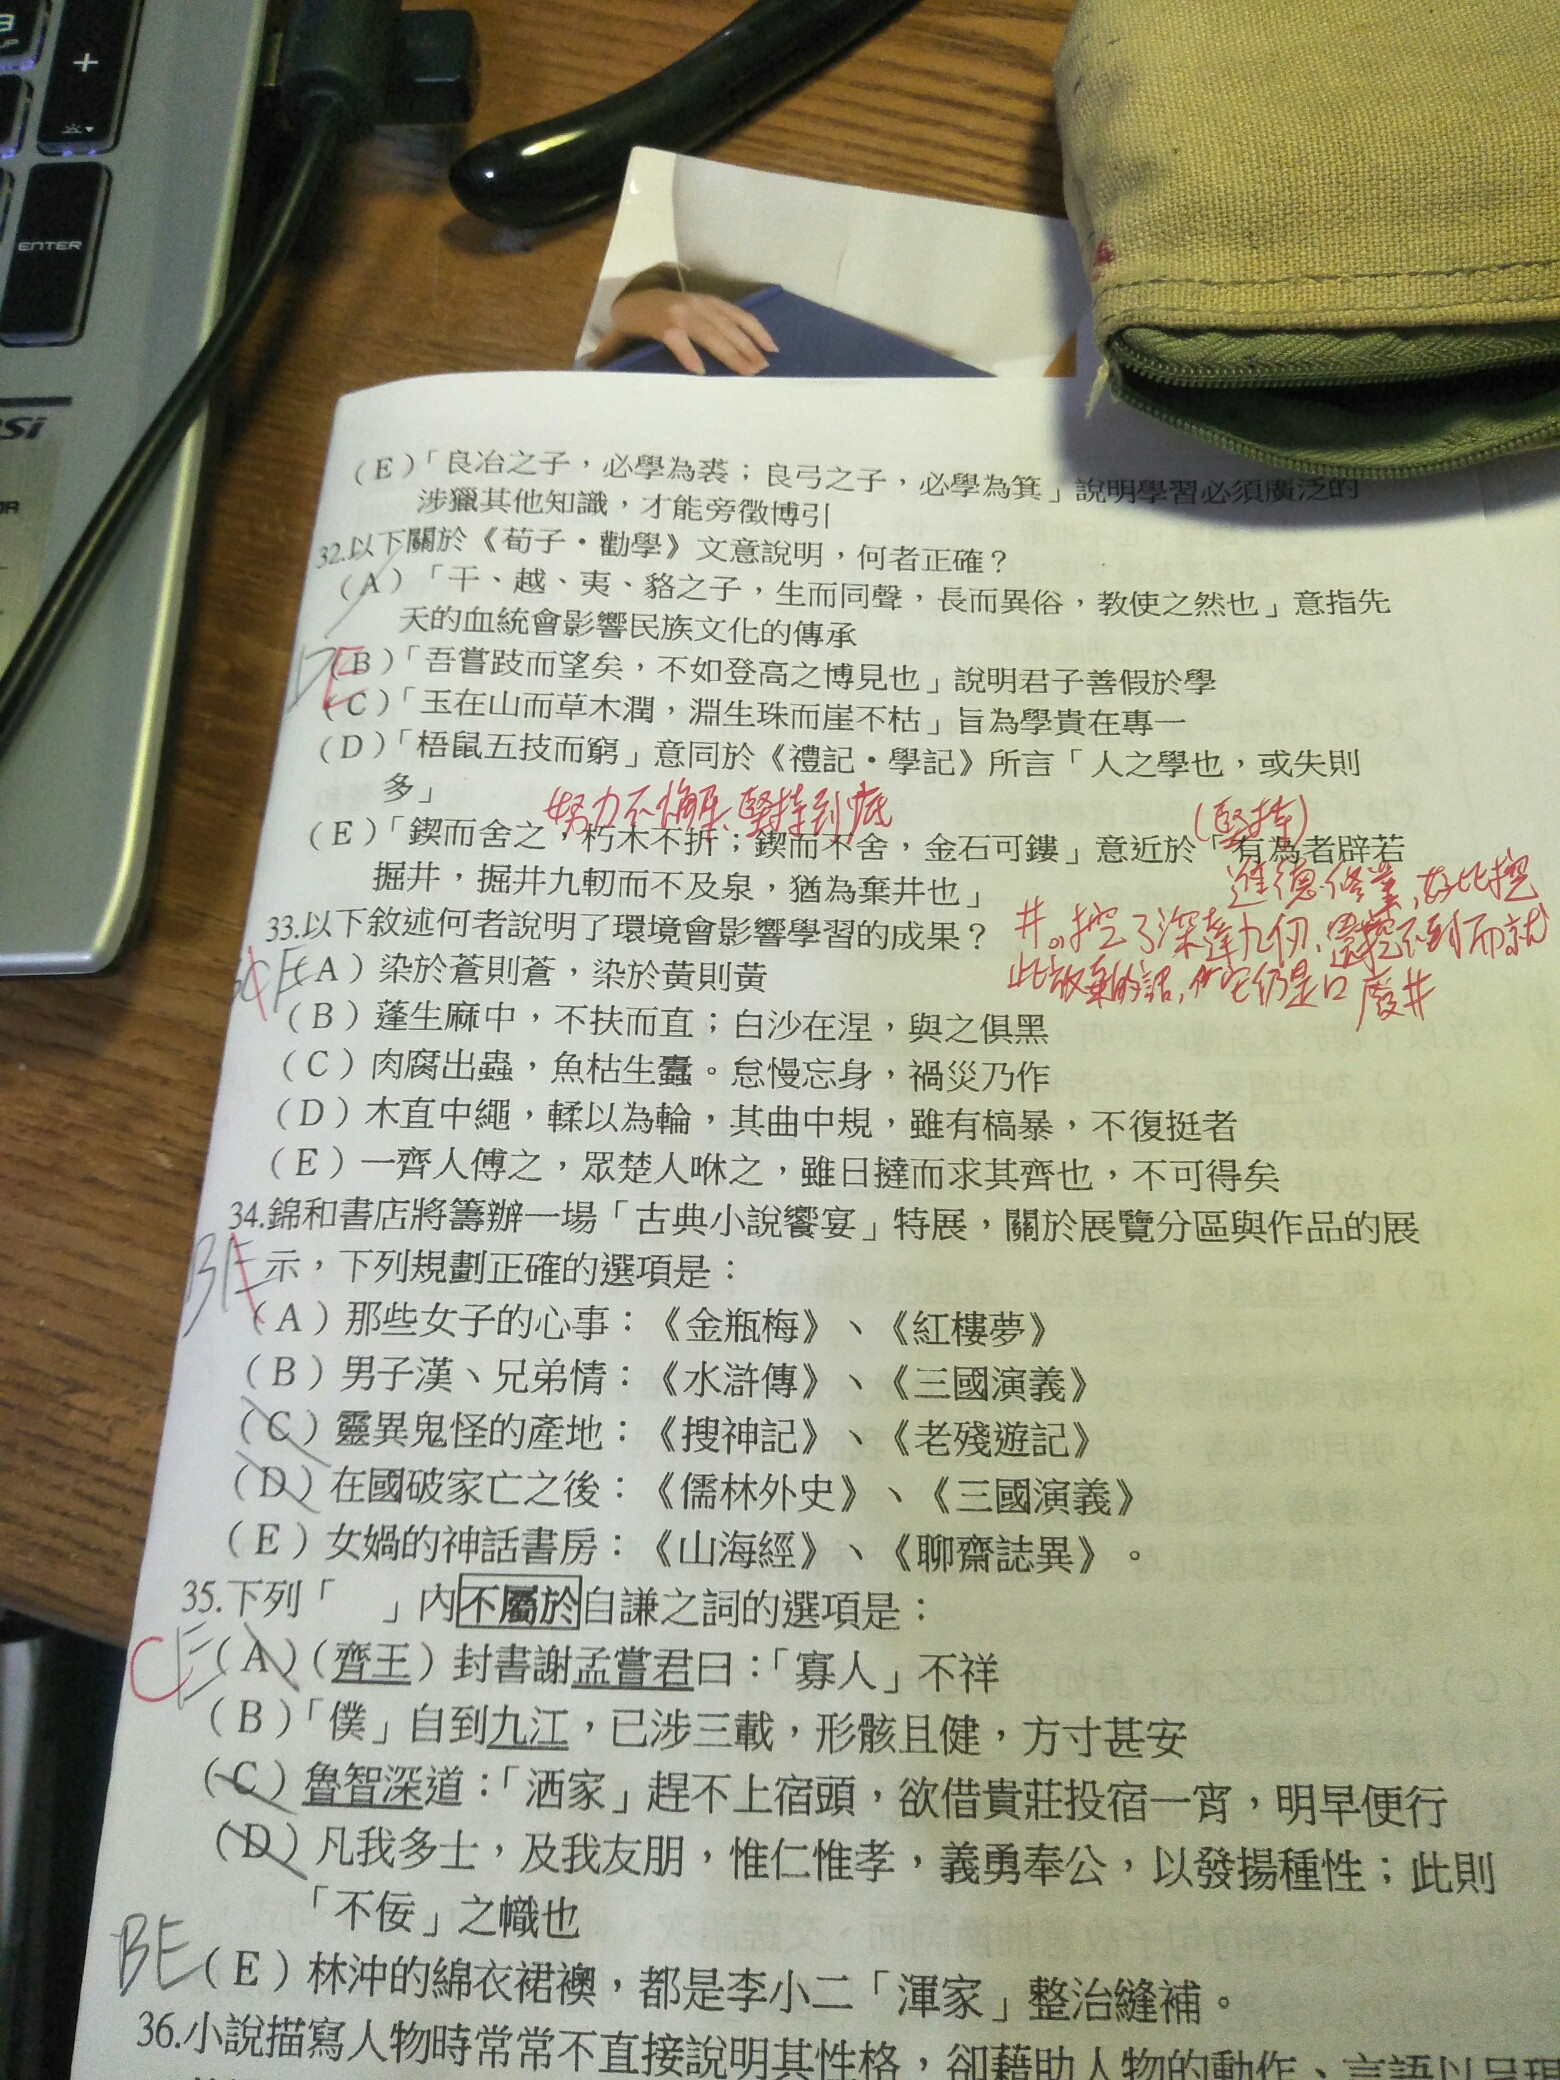 +
ENTER
(E)「良冶之子，必學為裘；良弓之子，必學為箕」說明學習必須廣泛的
涉獵其他知識，才能旁徵博引
32.以下關於《荀子•勸學》文意說明，何者正確？
(A)「干、越、夷、貉之子，生而同聲，長而異俗，教使之然也」意指先
天的血統會影響民族文化的傳承
DE
(B)「吾嘗跂而望矣，不如登高之博見也」說明君子善假於學
(C)「玉在山而草木潤，淵生珠而崖不枯」旨為學貴在專一
(D)「梧鼠五技而窮」意同於《禮記•學記》所言「人之學也，或失則
多」
努力不懈、堅持到底
(堅持)
(E)「鍥而舍之，朽木不折；鍥而不舍，金石可鏤」意近於「有為者辟若
掘井，掘井九軔而不及泉，猶為棄井也」
進德修業，好比挖
井。挖了深達九仞、還挖不到而就
此放棄的話，但它仍是口廢井
33.以下敘述何者說明了環境會影響學習的成果？
(A)染於蒼則蒼，染於黃則黃
(B)蓬生麻中，不扶而直；白沙在涅，與之俱黑
(C)肉腐出蟲，魚枯生蠹。怠慢忘身，禍災乃作
(D)木直中繩，輮以為輪，其曲中規，雖有槁暴，不復挺者
(E)一齊人傅之，眾楚人咻之，雖日撻而求其齊也，不可得矣
34.錦和書店將籌辦一場「古典小說饗宴」特展，關於展覽分區與作品的展
BE
示，下列規劃正確的選項是：
(A)那些女子的心事：《金瓶梅》、《紅樓夢》
(B)男子漢、兄弟情：《水滸傳》、《三國演義》
(C)靈異鬼怪的產地：《搜神記》、《老殘遊記》
(D)在國破家亡之後：《儒林外史》、《三國演義》
(E)女媧的神話書房：《山海經》、《聊齋誌異》。
35.下列「　」內不屬於自謙之詞的選項是：
CE
(A)(齊王)封書謝孟嘗君曰：「寡人」不祥
(B)「僕」自到九江，已涉三載，形骸且健，方寸甚安
(C)魯智深道：「洒家」趕不上宿頭，欲借貴莊投宿一宵，明早便行
(D)凡我多士，及我友朋，惟仁惟孝，義勇奉公，以發揚種性；此則
「不佞」之幟也
BE
(E)林沖的綿衣裙襖，都是李小二「渾家」整治縫補。
36.小說描寫人物時常常不直接說明其性格，卻藉助人物的動作、言語以呈現